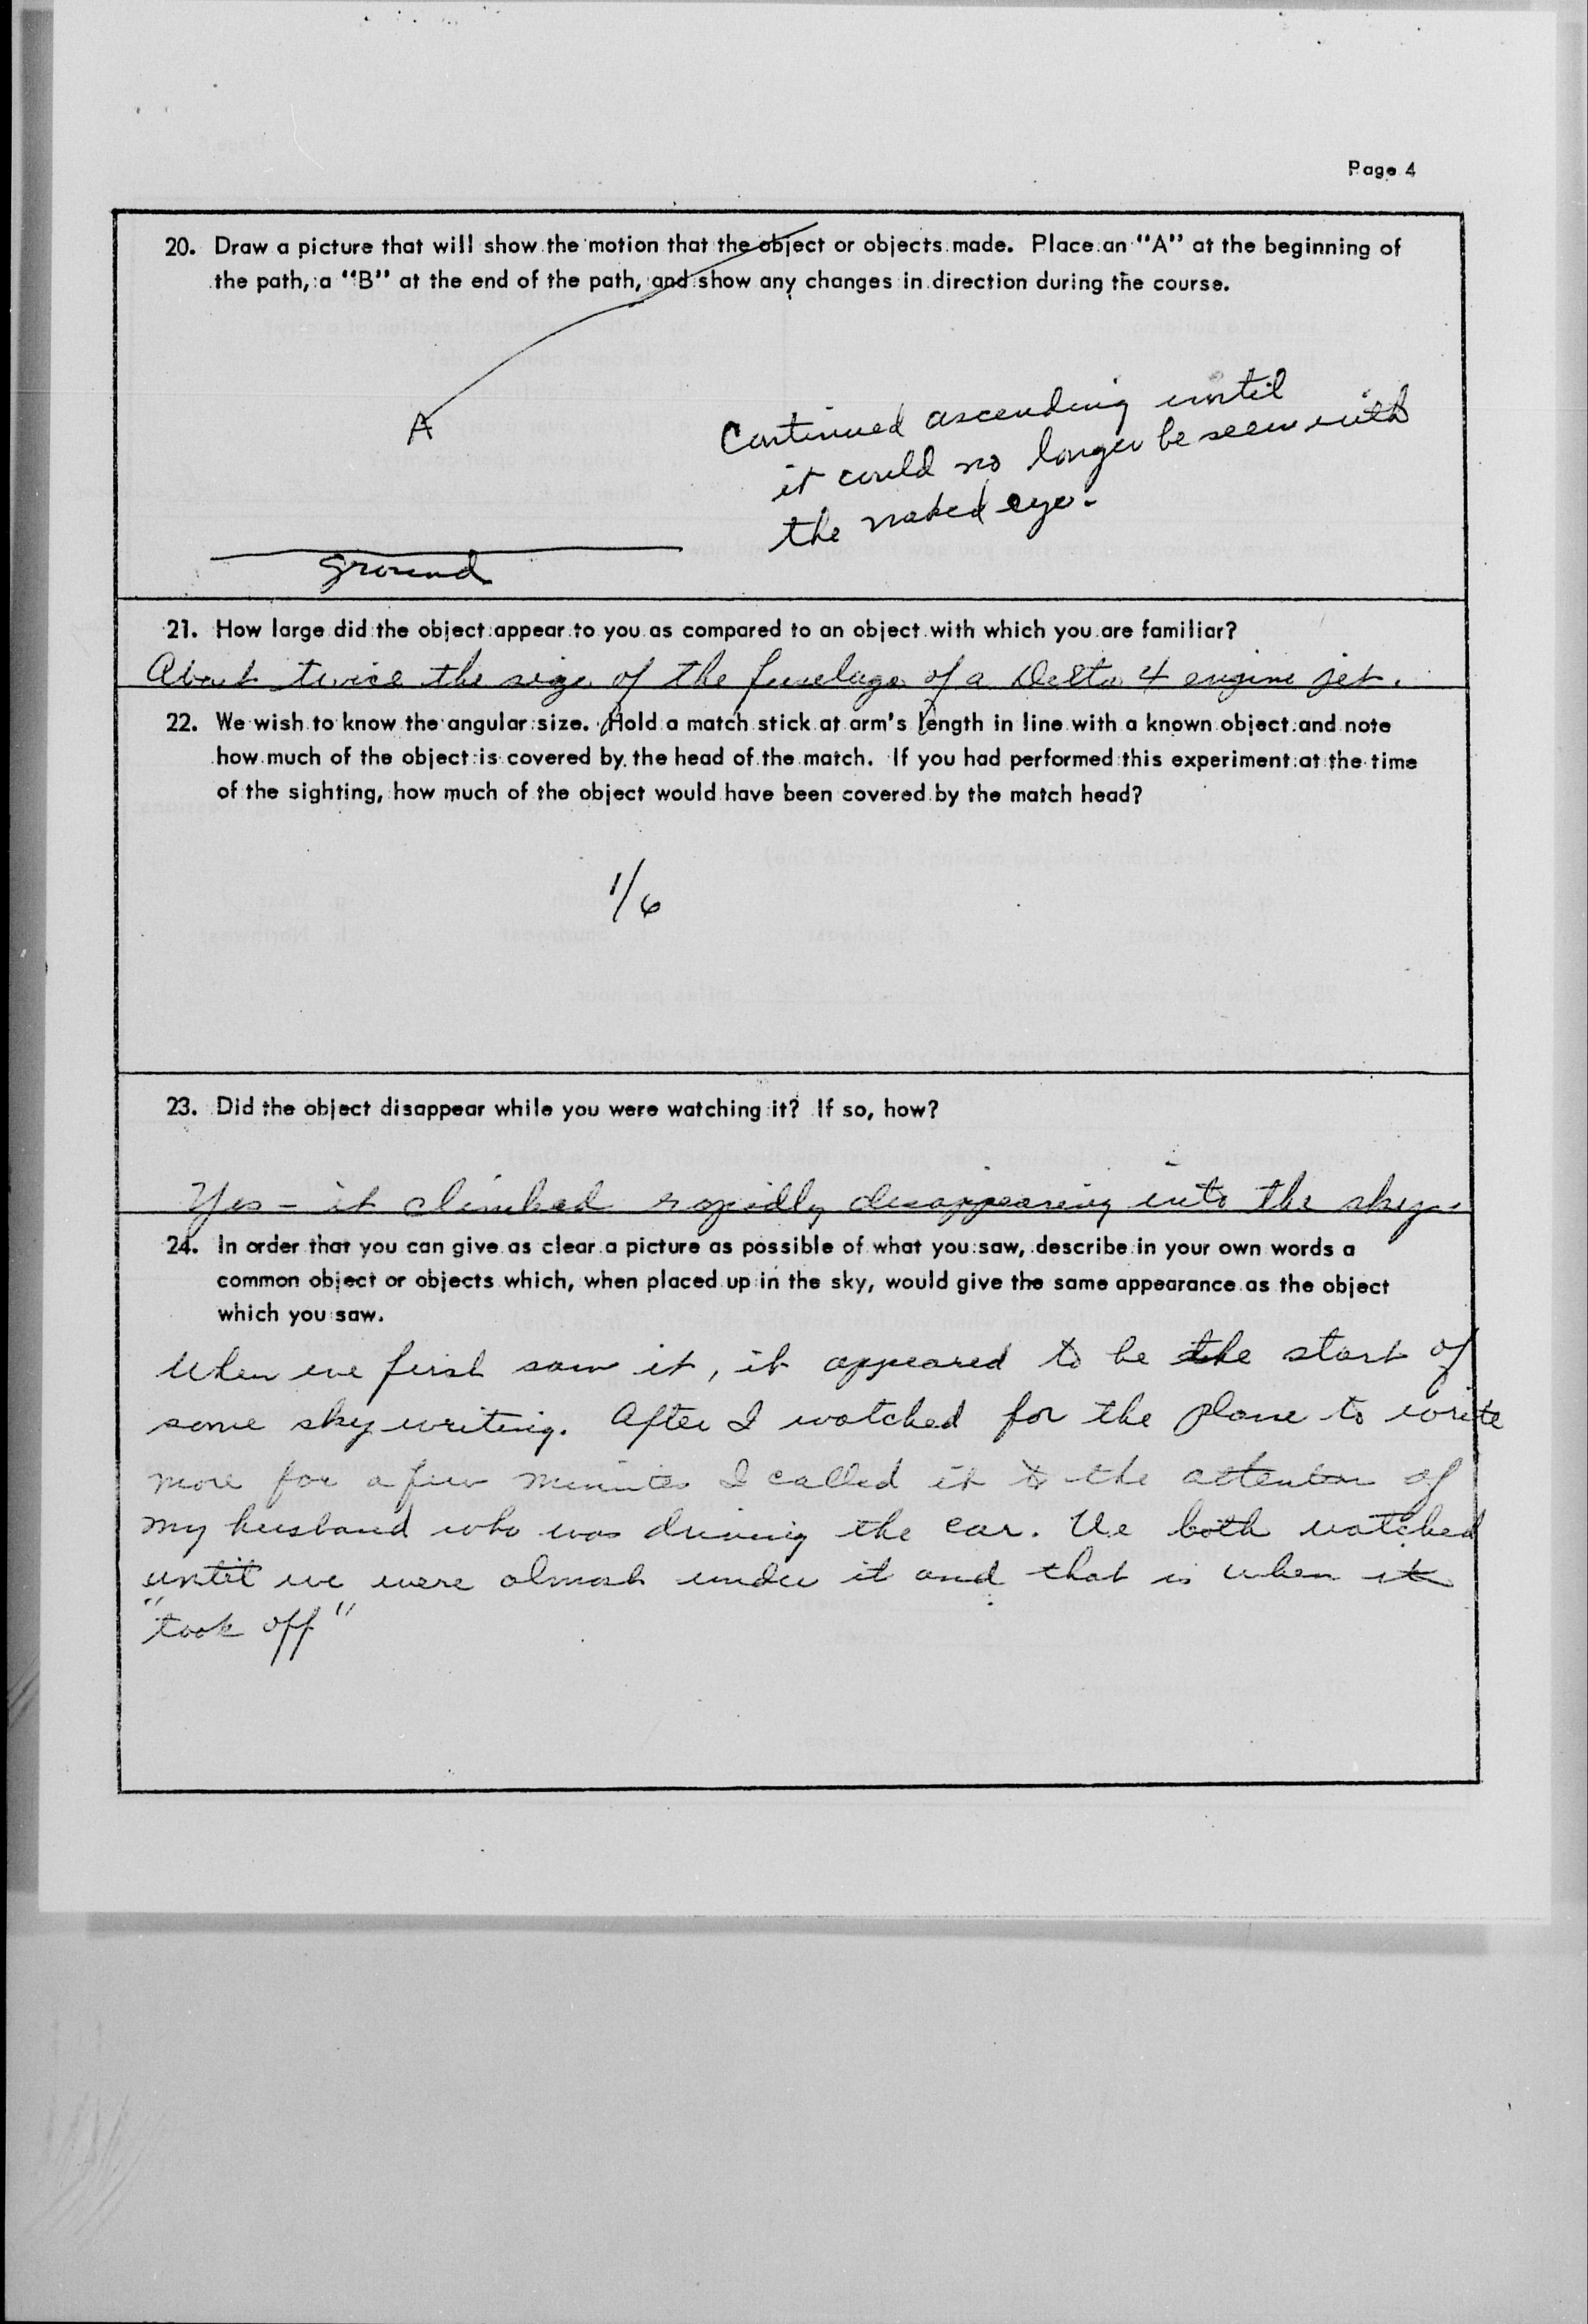 Page 4
20. Draw a picture that will show the motion that the object or objects made. Place an "A" at the beginning of
the path, a "B" at the end of the path, and show any changes in direction during the course.
A
Continued ascending until
it could no longer be seen with
the naked eye.
ground
21. How large did the object appear to you as compared to an object with which you are familiar?
About twice the size of the fuselage of a Delta 4 engine jet.
22. We wish to know the angular size. Hold a match stick at arm's length in line with a known object and note
how much of the object is covered by the head of the match. If you had performed this experiment at the time
of the sighting, how much of the object would have been covered by the match head?
1/6
23. Did the object disappear while you were watching it? If so, how?
Yes - it climbed rapidly disappearing into the sky.
24. In order that you can give as clear a picture as possible of what you saw, describe in your own words a
common object or objects which, when placed up in the sky, would give the same appearance as the object
which you saw.
When we first saw it, it appeared to be the start of
some sky writing. After I watched for the plane to write
more for a few minutes I called it to the attention of
my husband who was driving the car. We both watched
until we were almost under it and that is when it
"took off"